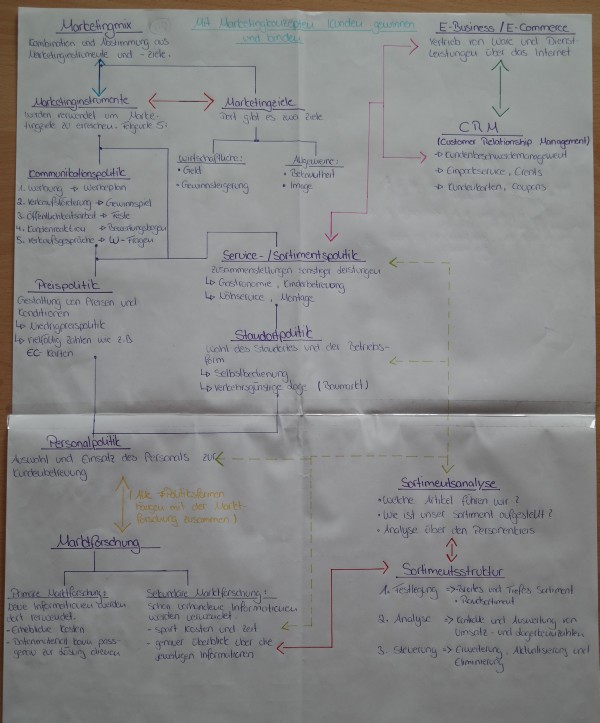 Mit Marketingkonzepten Kunden gewinnen
und binden
Marketingmix
Kombination und Abstimmung aus
Marketinginstrumente und - Ziele.
E-Business / E-Commerce
Vertrieb von Ware und Dienst-
leistungen über das Internet
Marketinginstrumente
werden verwendet um Marke-
tingziele zu erreichen. Folgende 5:
Marketingziele
Zeit gibt es zwei Ziele
CRM
(Customer Relationship Management)
Kundenbeschwerdemanagement
Einpackservice, Events
Kundenkarten, Coupons
Wirtschaftliche:
• Geld
• Gewinnsteigerung
Allgemeine:
• Bekanntheit
• Image
Kommunikationspolitik
1. Werbung → Werbeplan
2. Verkaufsförderung → Gewinnspiel
3. Öffentlichkeitsarbeit → Feste
4. → Bewertungsbogen
5. Verkaufsgespräche → W-Fragen
Service-/Sortimentspolitik
Zusammenstellungen sonstiger Leistungen
↳ Gastronomie, Kinderbetreuung
↳ Nähservice, Montage
Preispolitik
Gestaltung von Preisen und
Konditionen
↳ Niedrigpreispolitik
↳ vielfältig zahlen wie z.B
EC Karten
Standortpolitik
Wahl des Standortes und der Betriebs-
form
↳ Selbstbedienung
↳ Verkehrsgünstige Lage (Baumarkt)
Personalpolitik
Auswahl und Einsatz des Personals zur
Kundenbetreuung
Alle
hängen mit der Markt-
forschung zusammen!
Marktforschung
Sortimentsanalyse
• Welche Artikel führen wir?
• Wie ist unser Sortiment aufgestellt?
• Analyse über den Personenkreis
Primäre Marktforschung:
neue Informationen werden
dort verwendet.
- Erhebliche Kosten
- Datenmaterial kann pass-
genau zur Lösung dienen
Sekundäre Marktforschung:
Schon vorhandene Informationen
werden verwendet.
- spart Kosten und Zeit
- genauer Überblick über die
jeweiligen Informationen
Sortimentsstruktur
1. Festlegung → Breites und Tiefes Sortiment
2. Analyse → Kontrolle und Auswertung von
Umsatz- und Lagerkennzahlen
3. Steuerung → Erweiterung, Aktualisierung und
Eliminierung